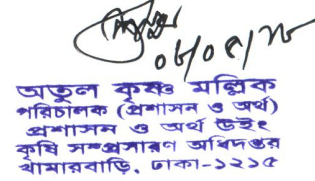 ০৮/০৫/১৮
অতুল কৃষ্ণ মল্লিক
পরিচালক (প্রশাসন ও অর্থ)
প্রশাসন ও অর্থ উইং
কৃষি সম্প্রসারণ অধিদপ্তর
খামারবাড়ি, ঢাকা-১২১৫